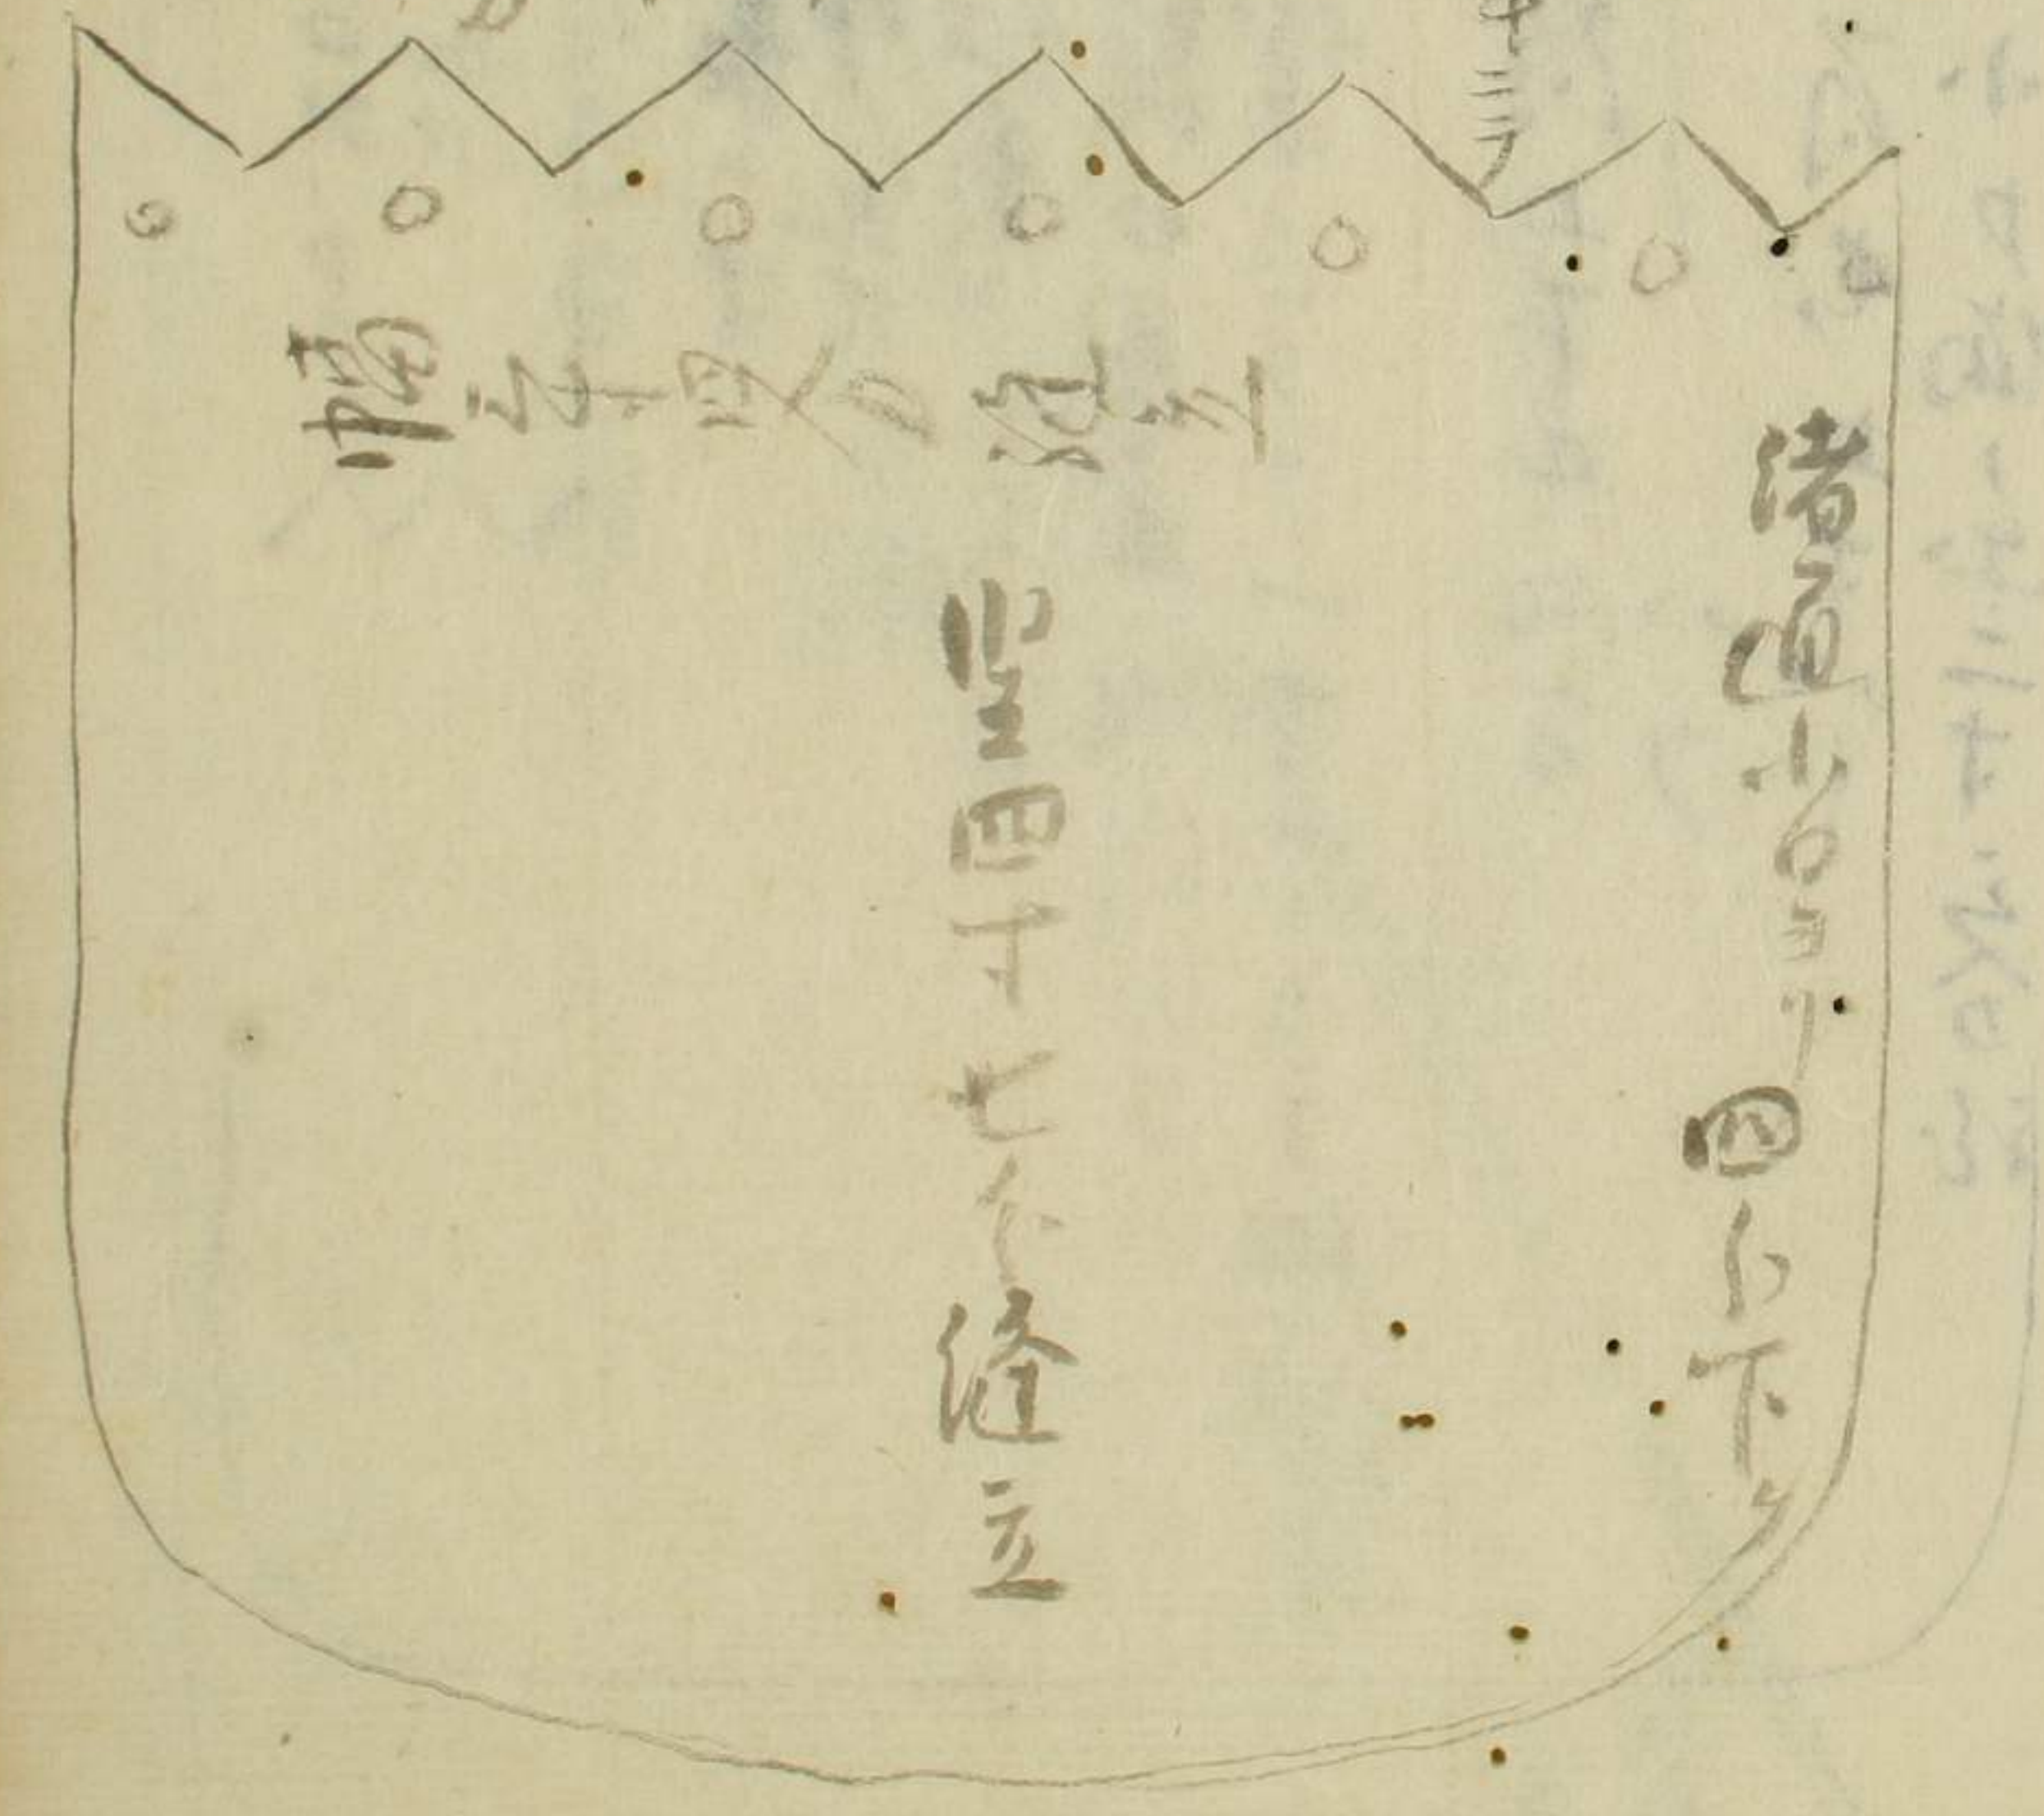 緒通小口ヨリ四分下ケ
竪四寸七分縫立
幅五寸四分縫立